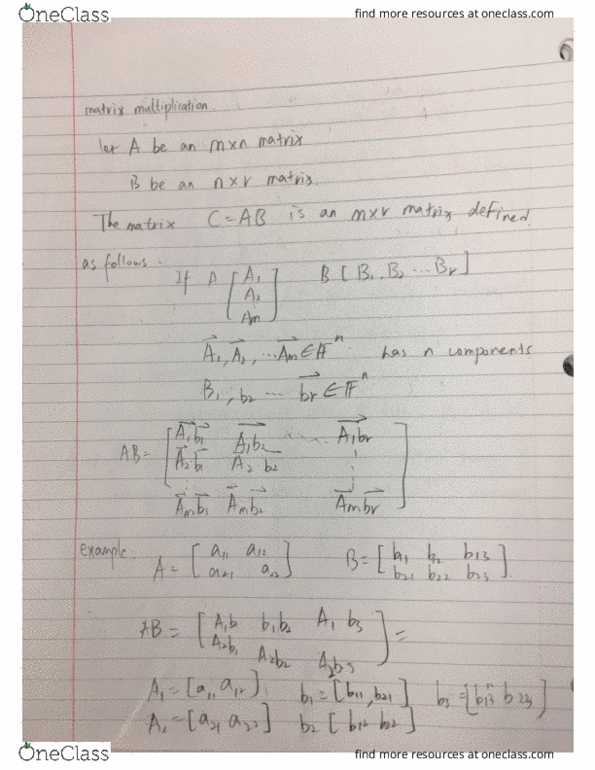 OneClass find more resources at oneclass.com
matrix multiplication.
let A be an m×n matrix
B be an n×r matrix.
The matrix C=AB is an m×r matrix defined.
as follows.
If A [A1 A2 Am] B [B1, B2 ... Br]
A1, A2, ... Am ∈ F^n. has n components
B1, b2 ... br ∈ F^n
AB= [A1b1 A1b2 ..... A1br
A2b1 A2 b2
Amb1 Amb2 Ambr]
Example. A = [a11 a12 B = [b1 b2 b13
a21 a12] b21 b22 b23]
AB = [A1b b1b2 A1 b3
A2b1 A2b2 A2b3] =
A1 = [a11 a12]. b1 = [b11, b21] b3 = [b13 b23]
A2 = [a21 a22] b2 [b12 b22]
OneClass find more resources at oneclass.com